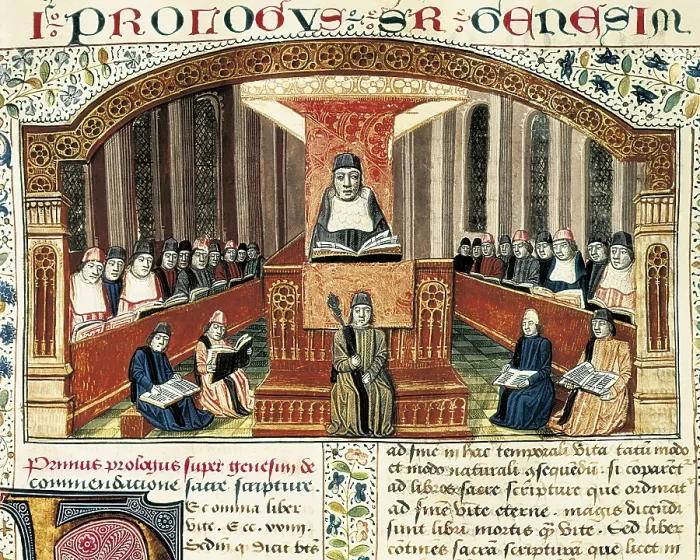 I PROLOGVS SR GENESIM
Primus prologus super genesim de
commendacione sacre scripture.
Ec omnia liber
vite. Ecc. xxiiij.
Scdm q̄ dicit bts
ad fine in hac temporali vita tatū modo
et modo naturali ɔsequēdū. si coparet
ad libros sacre scripture que ordinat
ad fine vite eterne. magis dicendi
sunt libri mortis q̄ vite. Sed liber
cotines sacrā scripturā que licet in